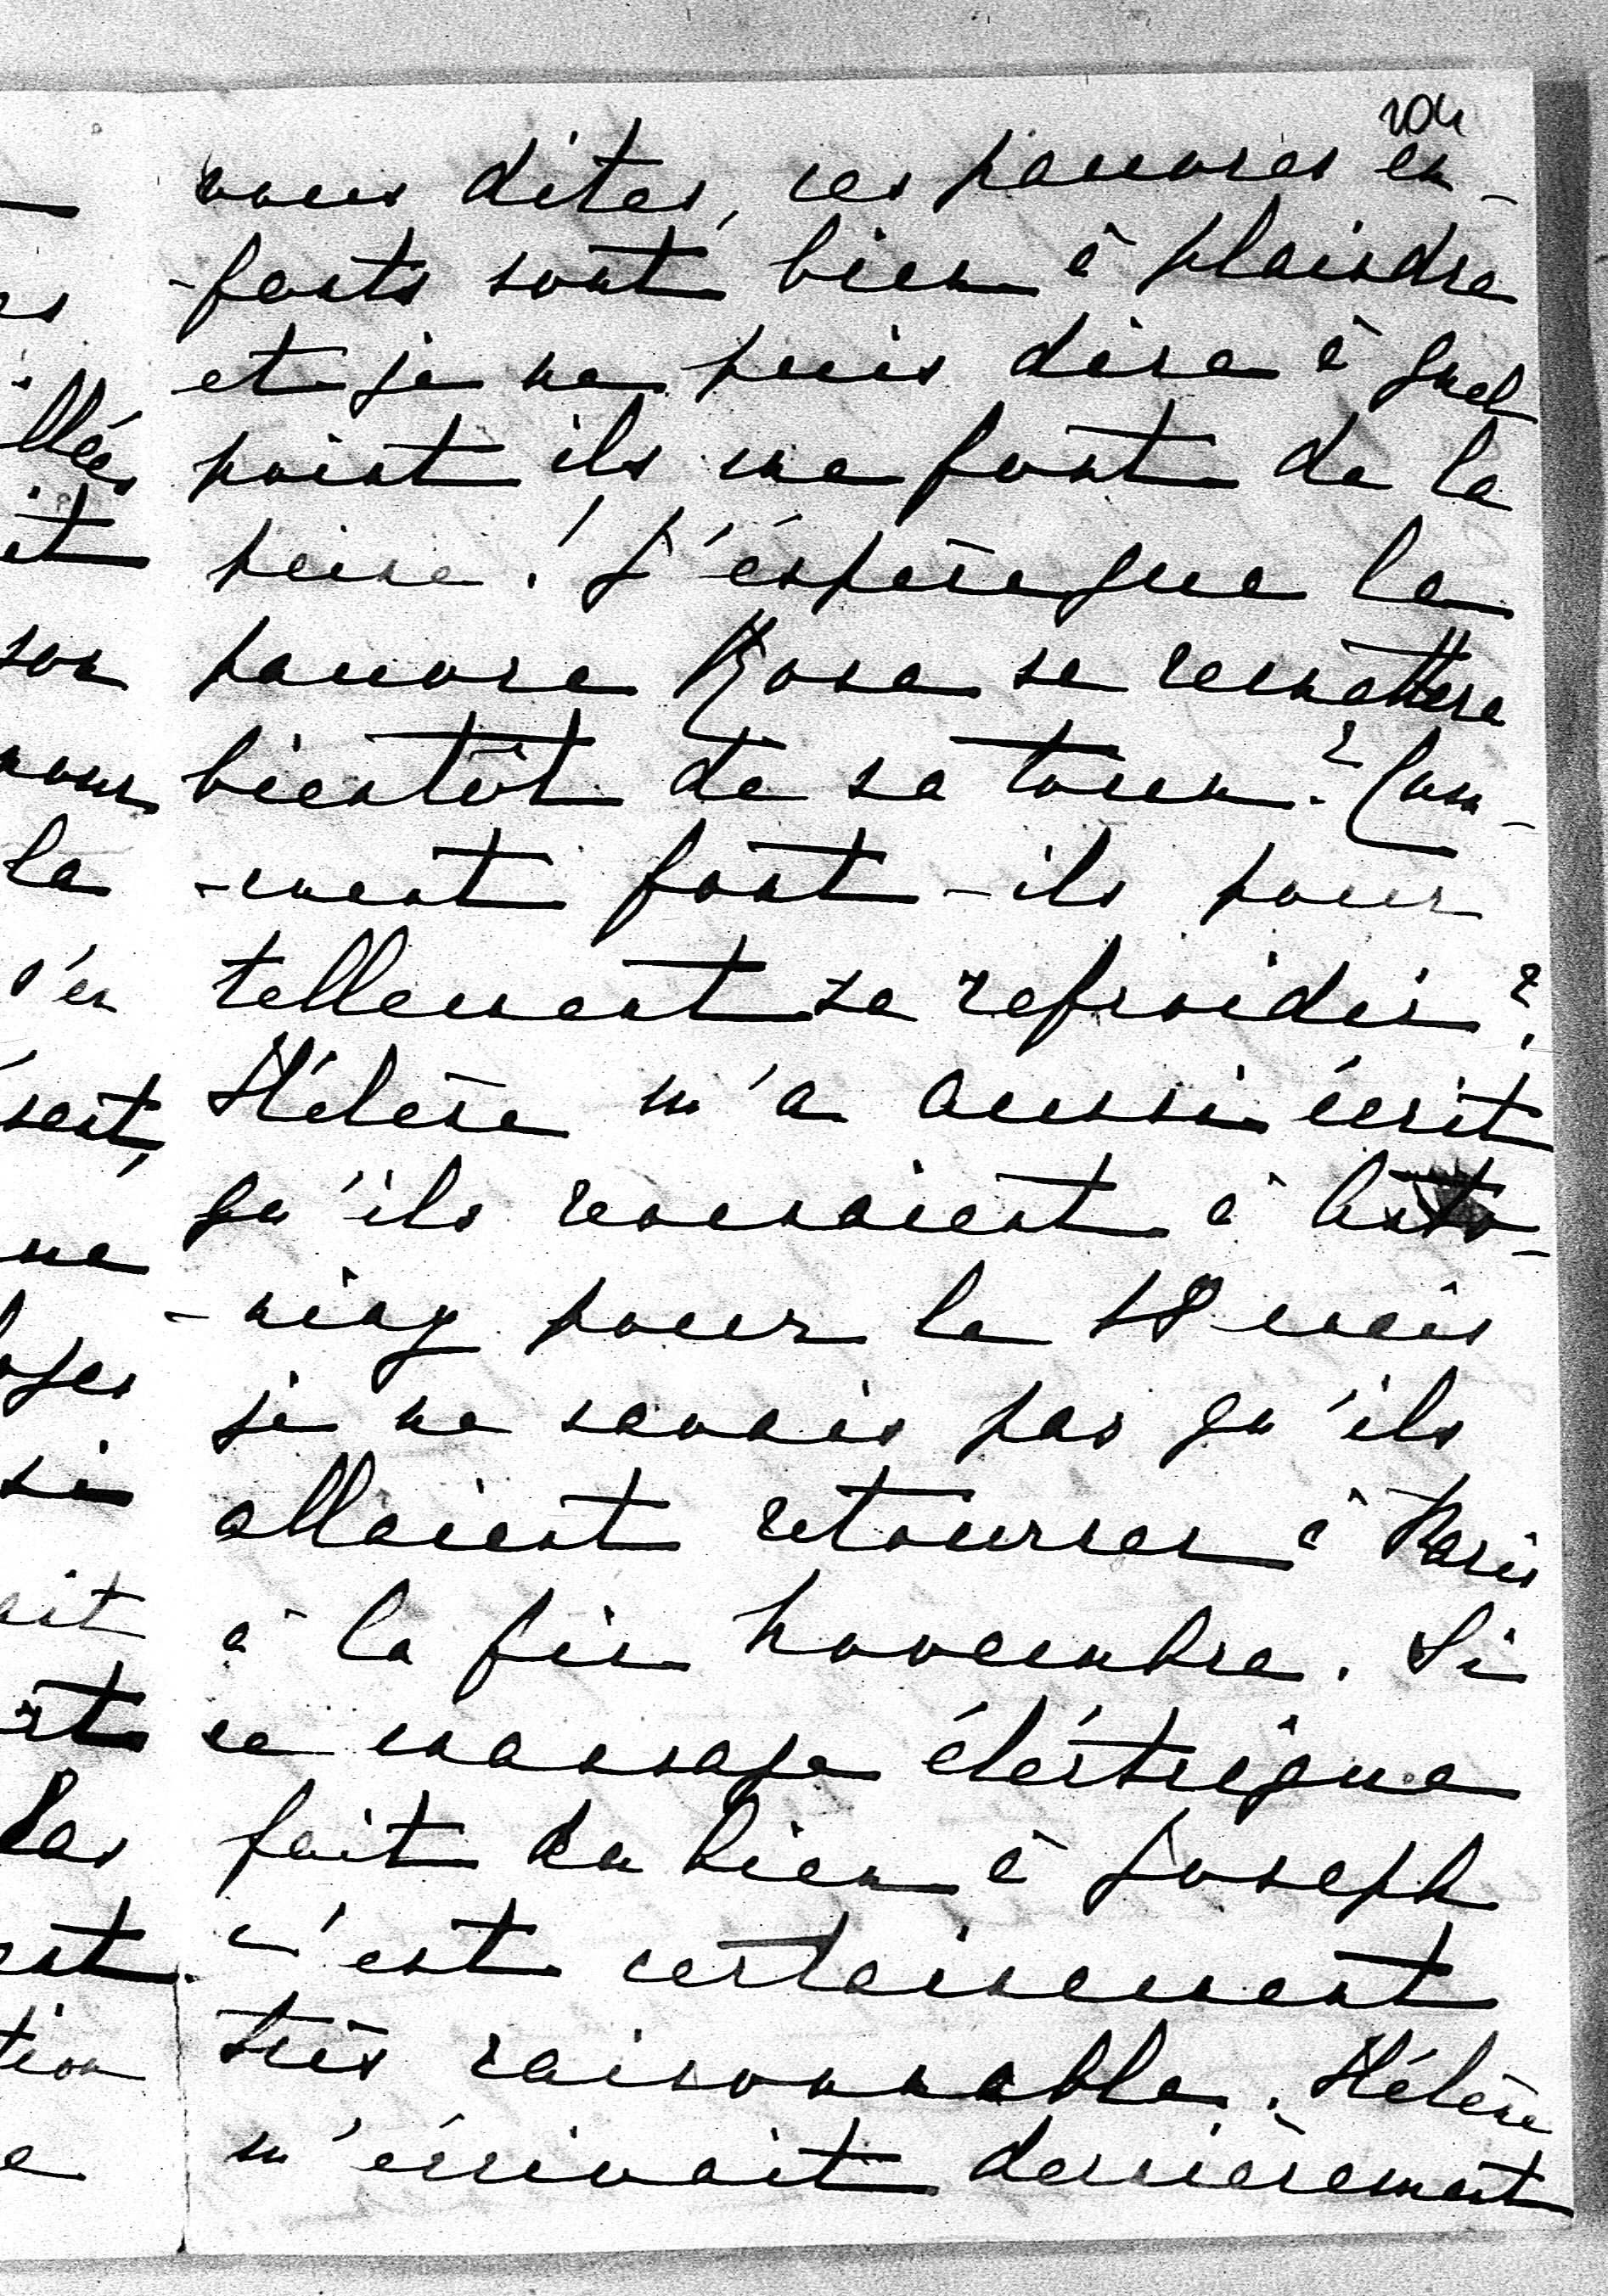 204
vous dites, ces pauvres en-
-fants sont bien à plaindre
et je ne puis dire à quel
point ils me font de la
peine! J'éspère que la
pauvre Rosa se remettra
bientôt de sa toux? Com-
-ment font-ils pour
tellement se refroidir?
Hélène m'a aussi écrit
qu'ils revenaient à
pour le 18 mais
je ne savais pas qu'ils
allaient retourner à Paris
à la fin Novembre. Si
ce massage éléctrique
fait du bien à Joseph
c'est certainement
très raisonnable. Hélène
m'écrivait dernièrement